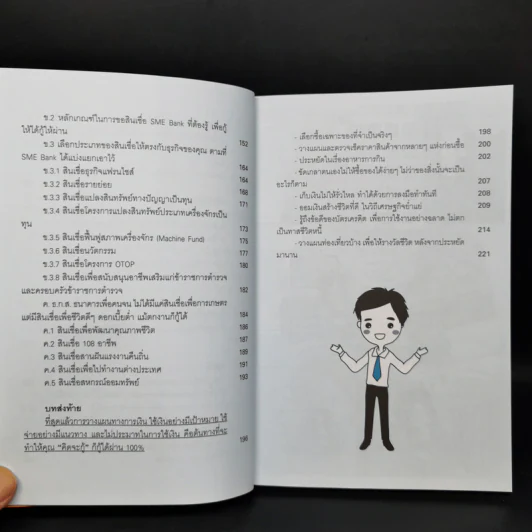 ข.2 หลักเกณฑ์ในการขอสินเชื่อ SME Bank ที่ต้องรู้ เพื่อกู้
ให้ได้กู้ให้ผ่าน 152
ข.3 เลือกประเภทของสินเชื่อให้ตรงกับธุรกิจของคุณ ตามที่
SME Bank ได้แบ่งแยกเอาไว้ 164
ข.3.1 สินเชื่อธุรกิจแฟรนไชส์ 164
ข.3.2 สินเชื่อรายย่อย 168
ข.3.3 สินเชื่อแปลงสินทรัพย์ทางปัญญาเป็นทุน 171
ข.3.4 สินเชื่อโครงการแปลงสินทรัพย์ประเภทเครื่องจักรเป็น
ทุน 173
ข.3.5 สินเชื่อฟื้นฟูสภาพเครื่องจักร (Machine Fund) 176
ข.3.6 สินเชื่อนวัตกรรม 177
ข.3.7 สินเชื่อโครงการ OTOP 180
ข.3.8 สินเชื่อเพื่อสนับสนุนอาชีพเสริมแก่ข้าราชการตำรวจ
และครอบครัวข้าราชการตำรวจ 182
ค. ธ.ก.ส. ธนาคารเพื่อคนจน ไม่ได้มีแค่สินเชื่อเพื่อการเกษตร
แต่มีสินเชื่อเพื่อชีวิตดีๆ ดอกเบี้ยต่ำ แม้ตกงานก็กู้ได้ 184
ค.1 สินเชื่อเพื่อพัฒนาคุณภาพชีวิต 186
ค.2 สินเชื่อ 108 อาชีพ 188
ค.3 สินเชื่อสานฝันแรงงานคืนถิ่น 190
ค.4 สินเชื่อเพื่อไปทำงานต่างประเทศ 191
ค.5 สินเชื่อสหกรณ์ออมทรัพย์ 193
บทส่งท้าย
ที่สุดแล้วการวางแผนทางการเงิน ใช้เงินอย่างมีเป้าหมาย ใช้
จ่ายอย่างมีแนวทาง และไม่ประมาทในการใช้เงิน คือต้นทางที่จะ
ทำให้คุณ "คิดจะกู้" ก็กู้ได้ผ่าน 100% 196
- เลือกซื้อเฉพาะของที่จำเป็นจริงๆ 198
- วางแผนและตรวจเช็คราคาสินค้าจากหลายๆ แห่งก่อนซื้อ 200
- ประหยัดในเรื่องอาหารการกิน 202
- ขัดเกลาตนเองไม่ให้ซื้อของได้ง่ายๆ ไม่ว่าของสิ่งนั้นจะเป็น
อะไรก็ตาม 207
- เก็บเงินไม่ให้รั่วไหล ทำได้ด้วยการลงมือทำทันที 208
- ออมเงินสร้างชีวิตที่ดี ในวิถีเศรษฐกิจย่ำแย่ 209
- รู้ถึงข้อดีของบัตรเครดิต เพื่อการใช้งานอย่างฉลาด ไม่ตก
เป็นทาสชีวิตหนี้ 214
- วางแผนท่องเที่ยวบ้าง เพื่อให้รางวัลชีวิต หลังจากประหยัด
มานาน 221